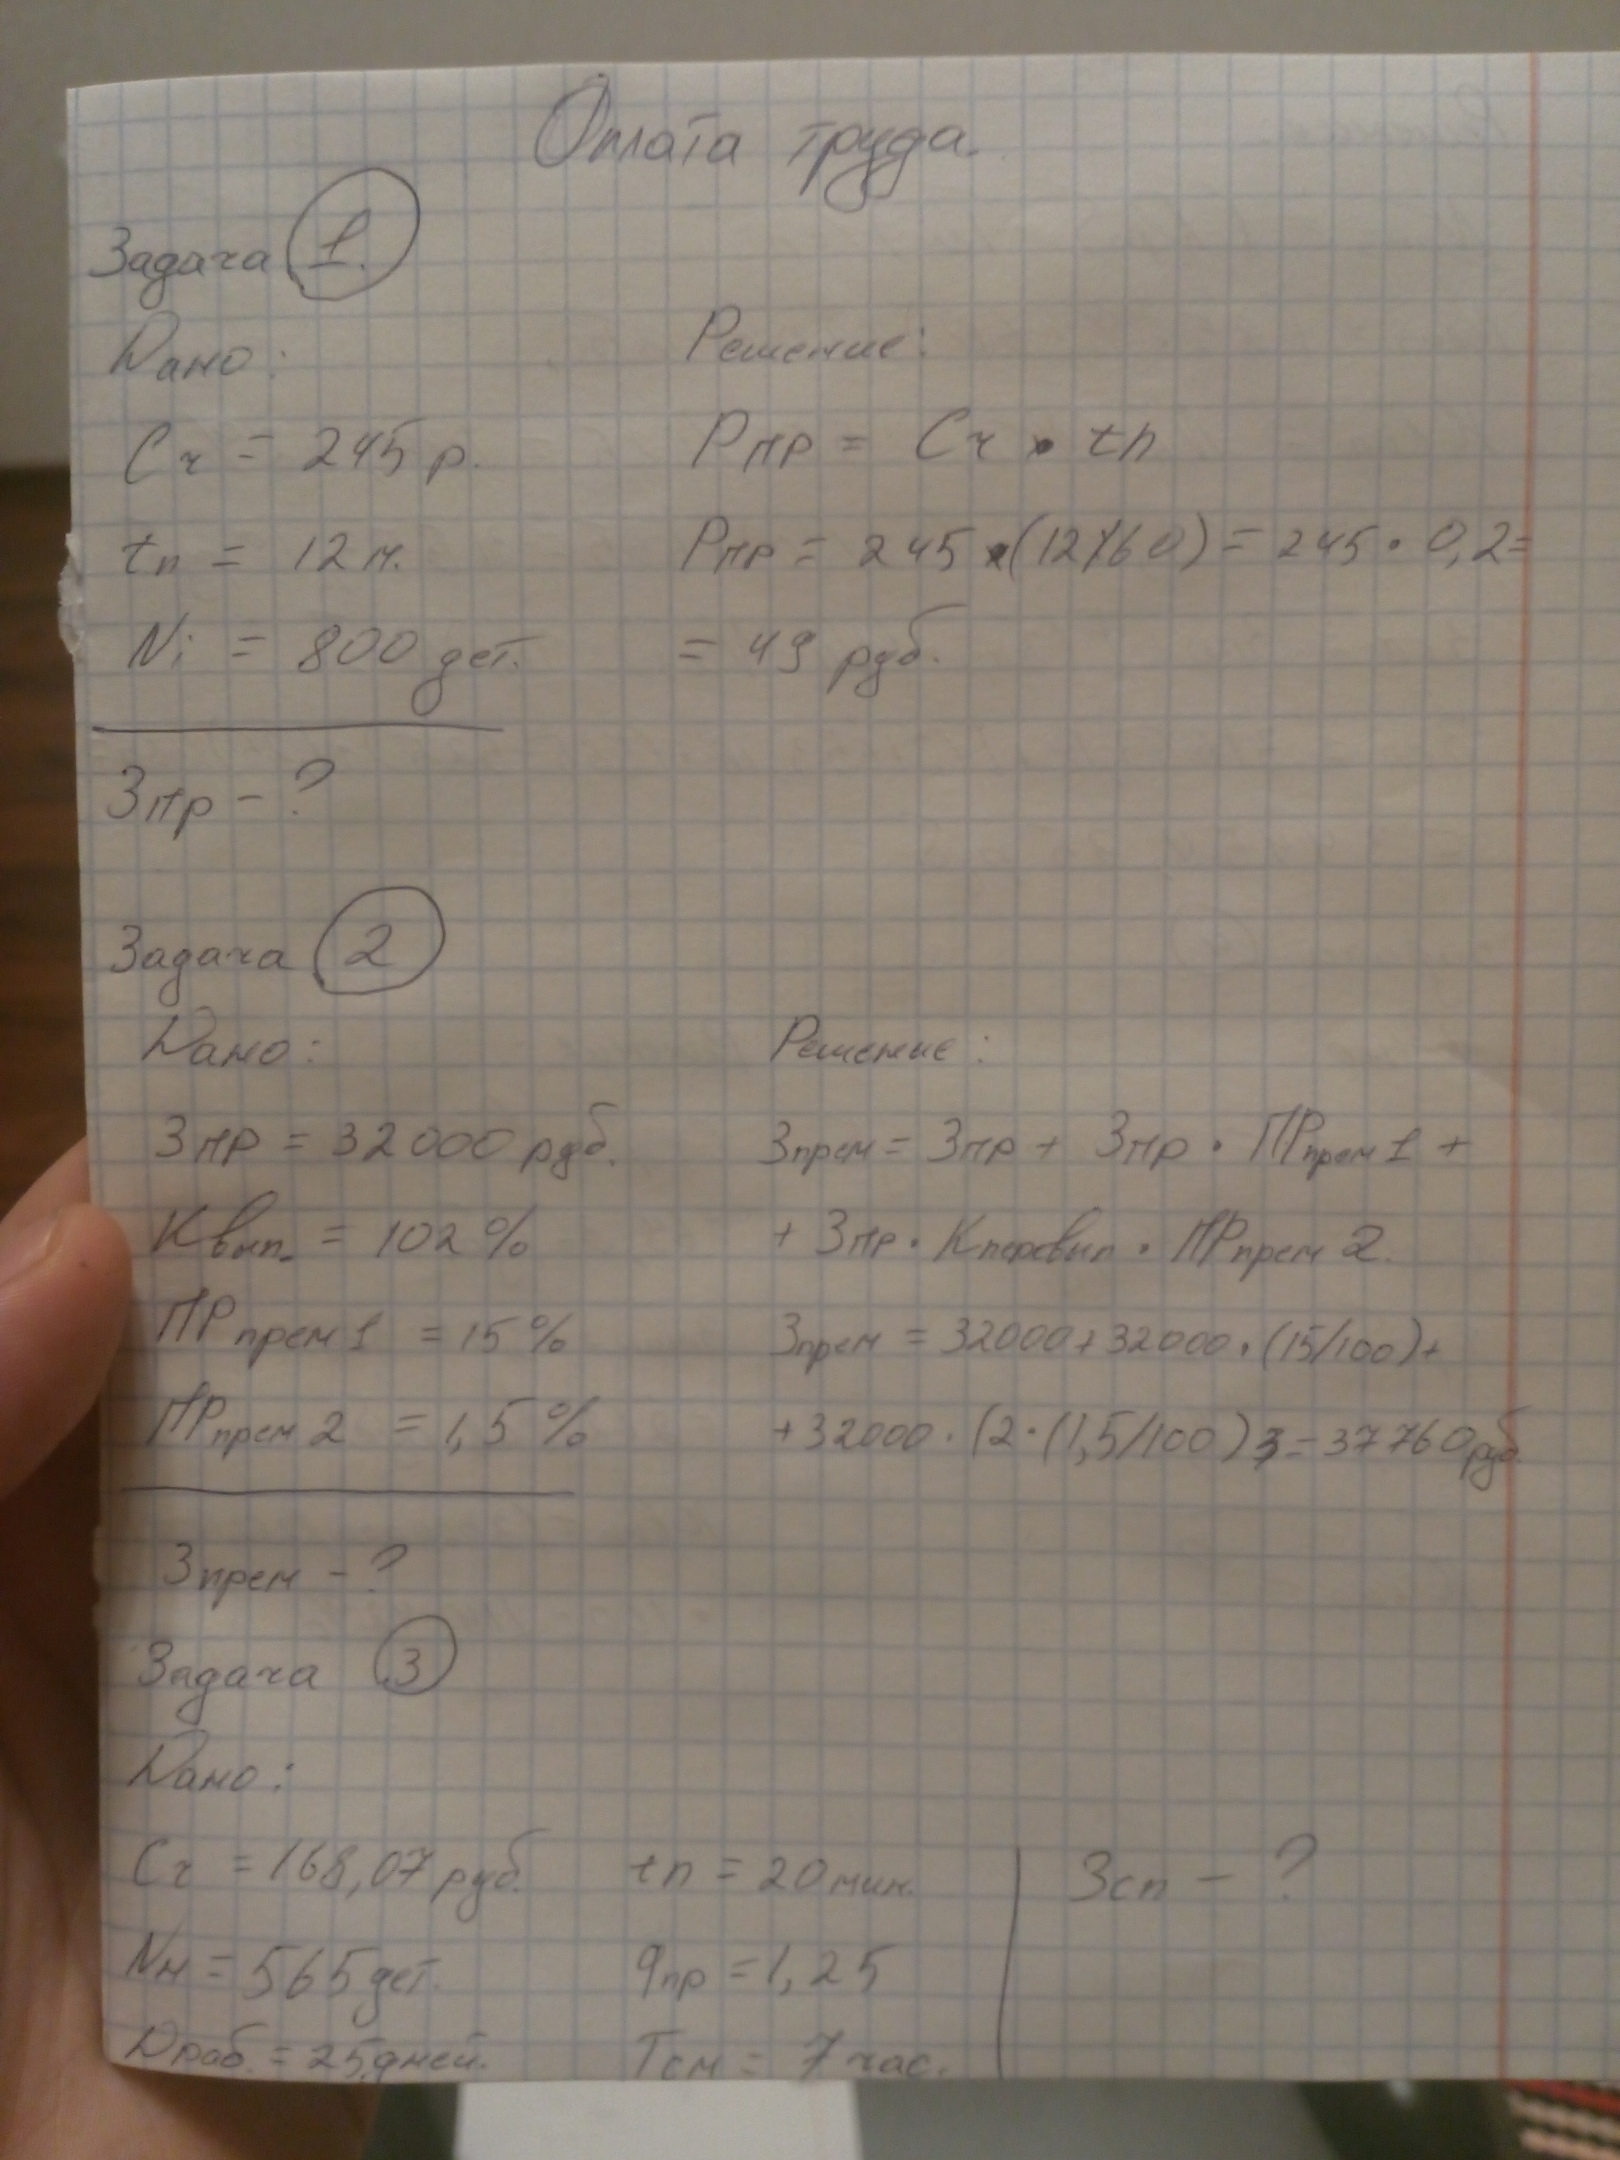 Оплата труда.
Задача 1.
Дано:
Сч = 245 р.
tп = 12 м.
Ni = 800 дет.
Зпр - ?
Решение:
Рпр = Сч • tп
Рпр = 245 • (12/60) = 245 • 0,2 =
= 49 руб.
Задача 2
Дано:
Зпр = 32000 руб.
Квып. = 102 %
ПРпрем 1 = 15 %
ПРпрем 2 = 1,5 %
Зпрем - ?
Решение:
Зпрем = Зпр + Зпр • ПРпрем 1 +
+ Зпр • Кперевып • ПРпрем 2.
Зпрем = 32000 + 32000 • (15/100) +
+ 32000 • (2 • (1,5/100) = 37760 руб.
Задача 3
Дано:
Сч = 168,07 руб. tп = 20 мин. Зсп - ?
Nн = 565 дет. qпр = 1,25
Драб. = 25 дней. Тсм = 7 час.